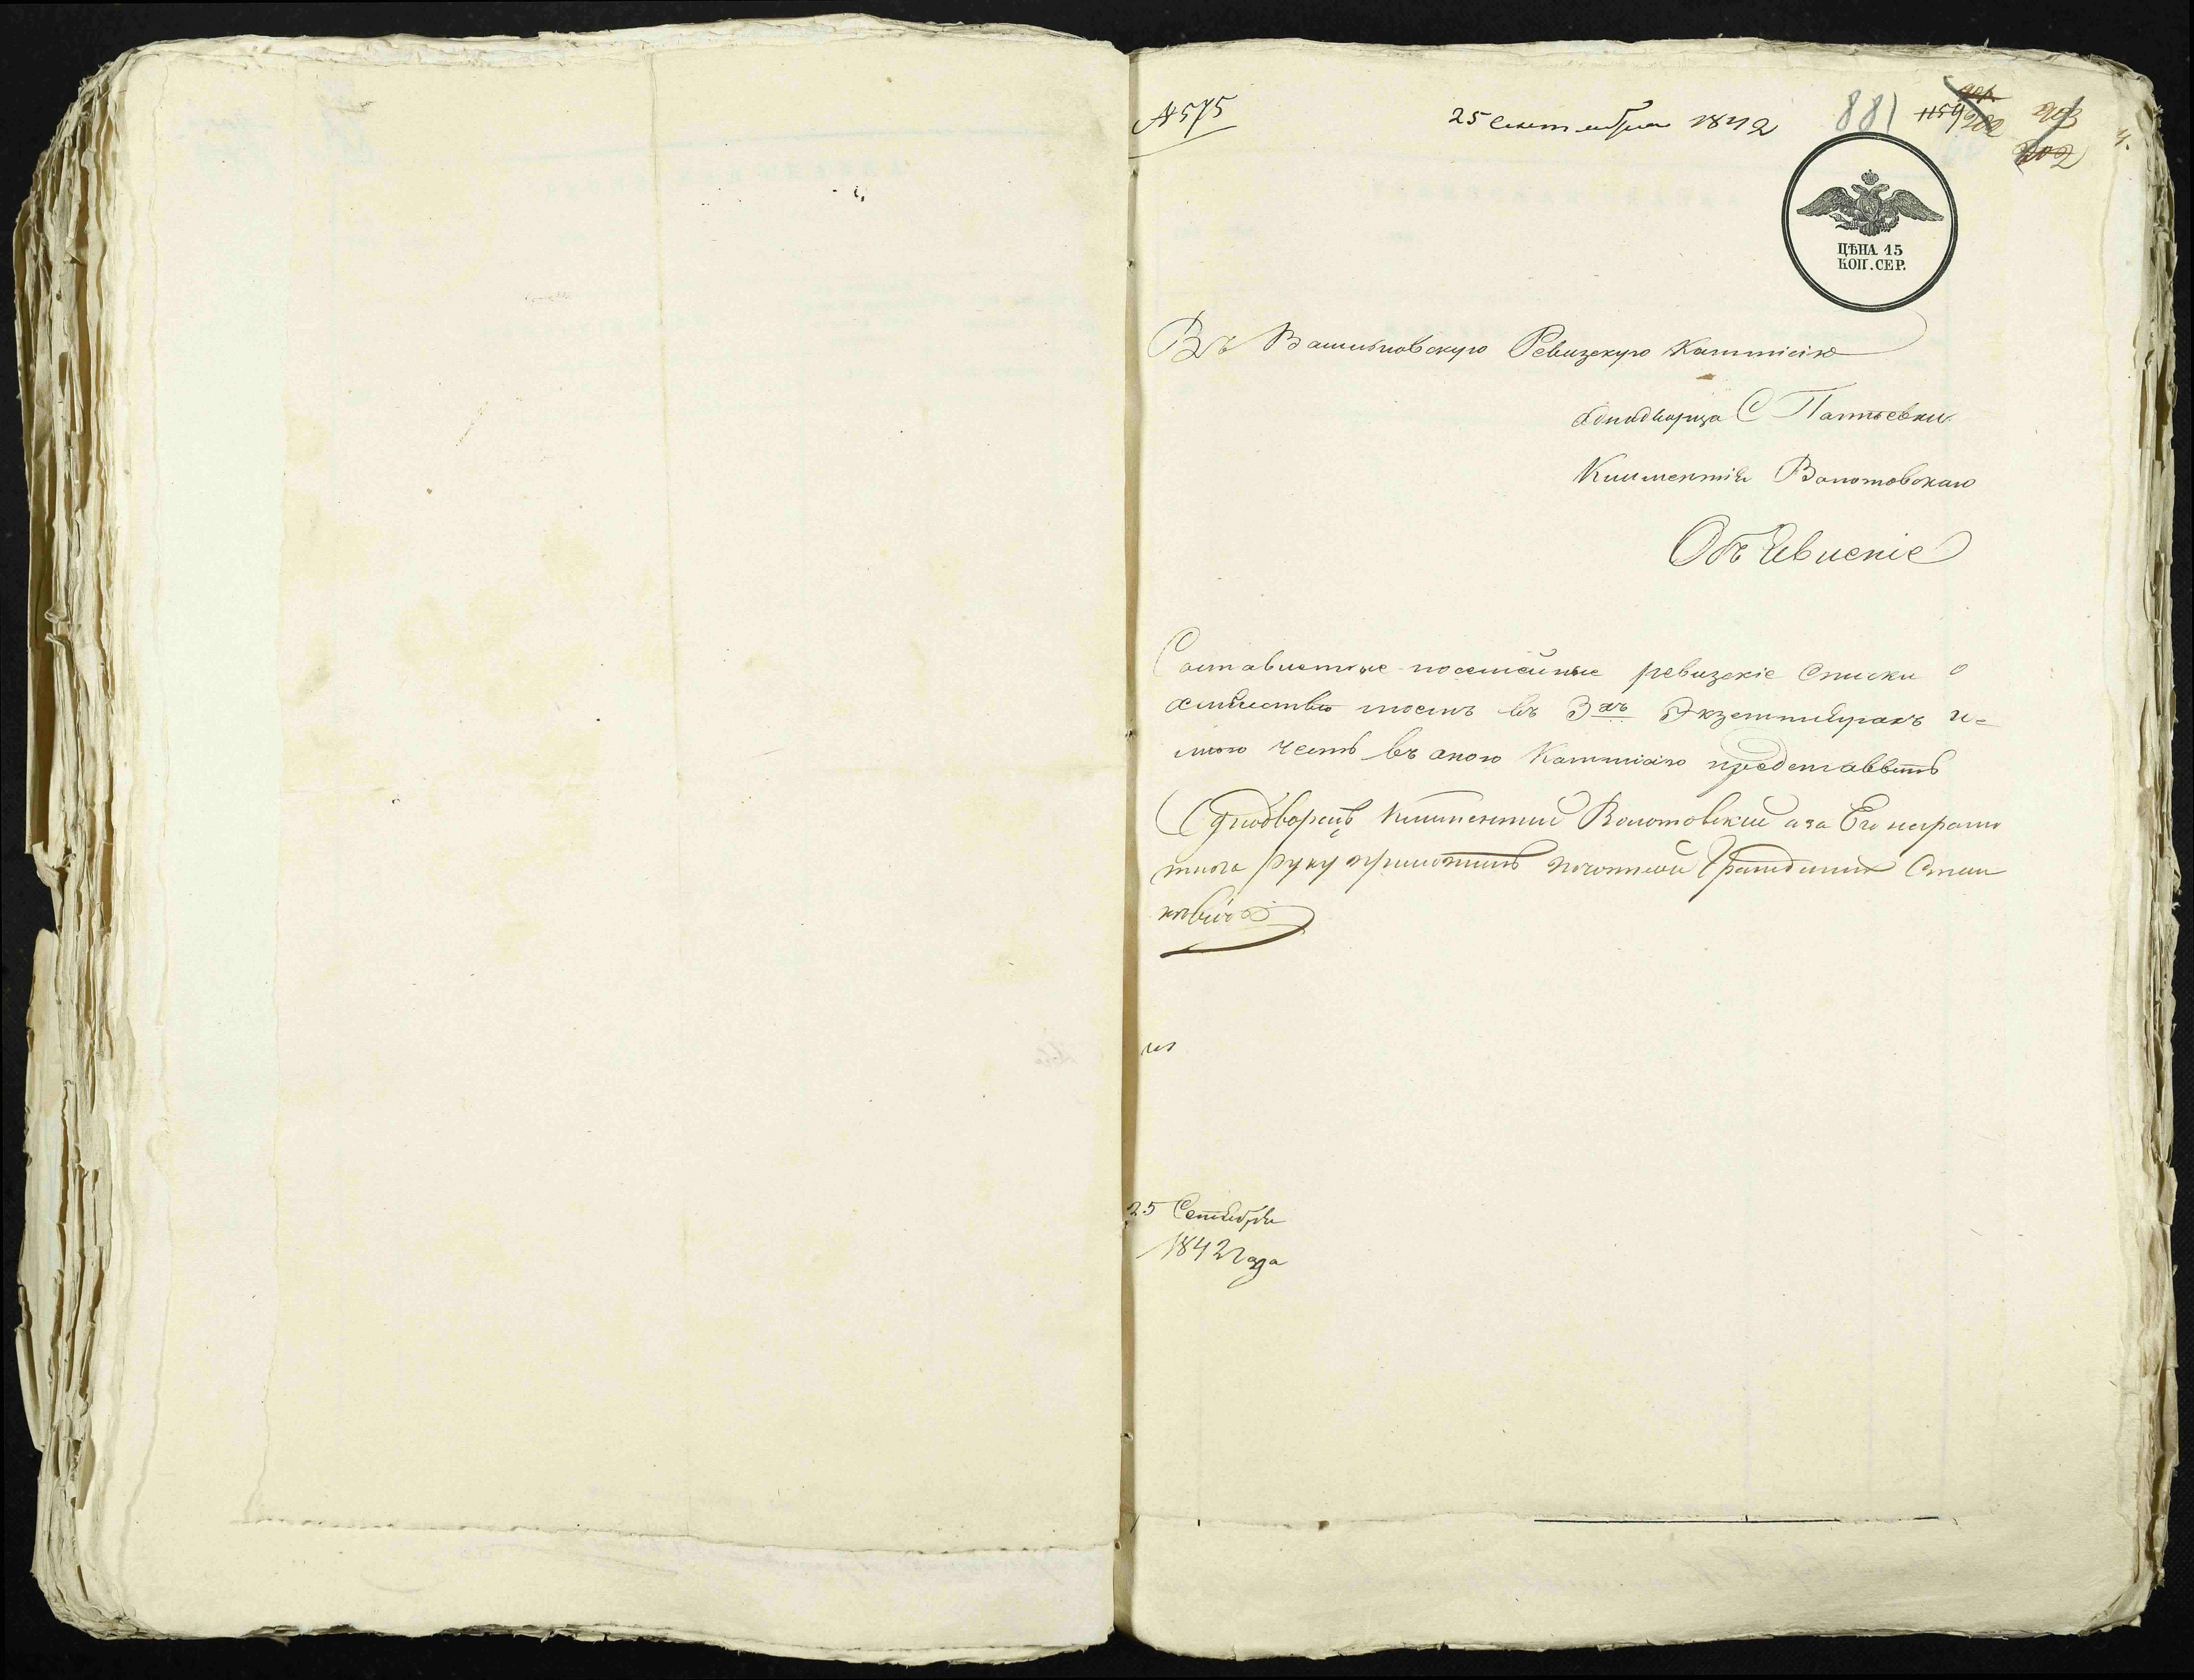 № 575
25 Сентября 1842
881
1154
202
903
ЦѢНА 15
КОП. СЕР.
Въ Васильковскую Ревизскую Каммисію
аднадворца С Патіевки
Климентія Волотовскаго
Объявленіе
Саставленные посемейные ревизскіе Списки о
семействѣ моемъ въ 3хъ Экземплярахъ и-
мѣю честь въ аною Каммисію представить
Однодворецъ Климентий Волотовский а за Его неграмо
тнога руку приложилъ почотной Гражданин
25 Сентября
1842 Года